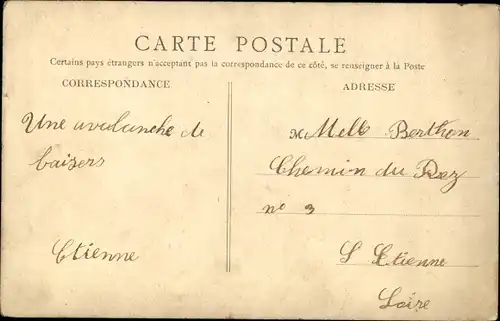 CARTE POSTALE
Certains pays étrangers n'acceptant pas la correspondance de ce côté, se renseigner à la Poste
CORRESPONDANCE
Une avalanche de
baisers
Etienne
ADRESSE
M Melle Berthon
Chemin du Rez
n° 3
S Etienne
Loire